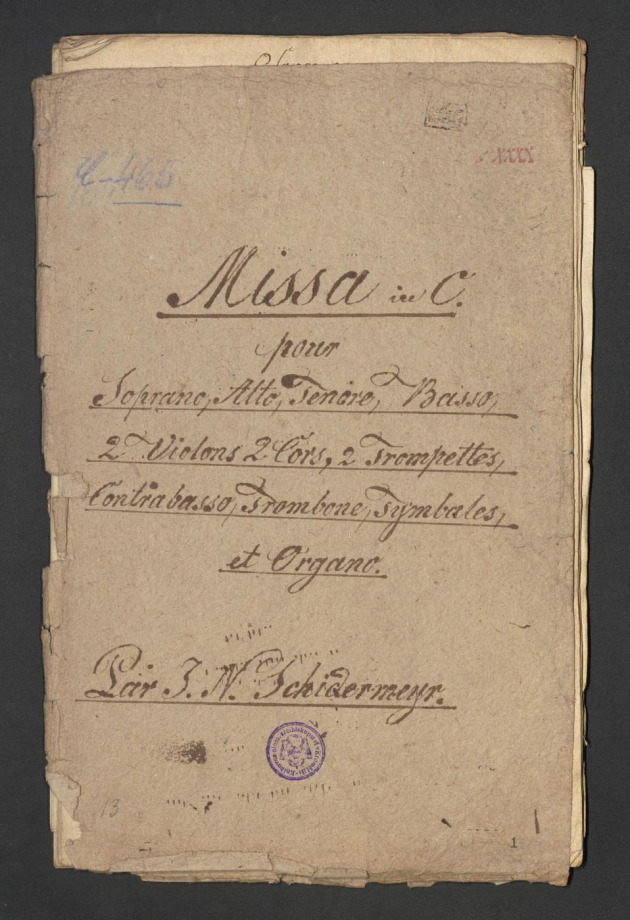 XXX
Missa in C.
pour
Soprano, Alto, Tenore, Basso,
2 Violons 2 Cors, 2 Trompettes,
Contrabasso, Trombone, Tymbales,
et Organo.
Par J. N. Schidermeyr.
13
1